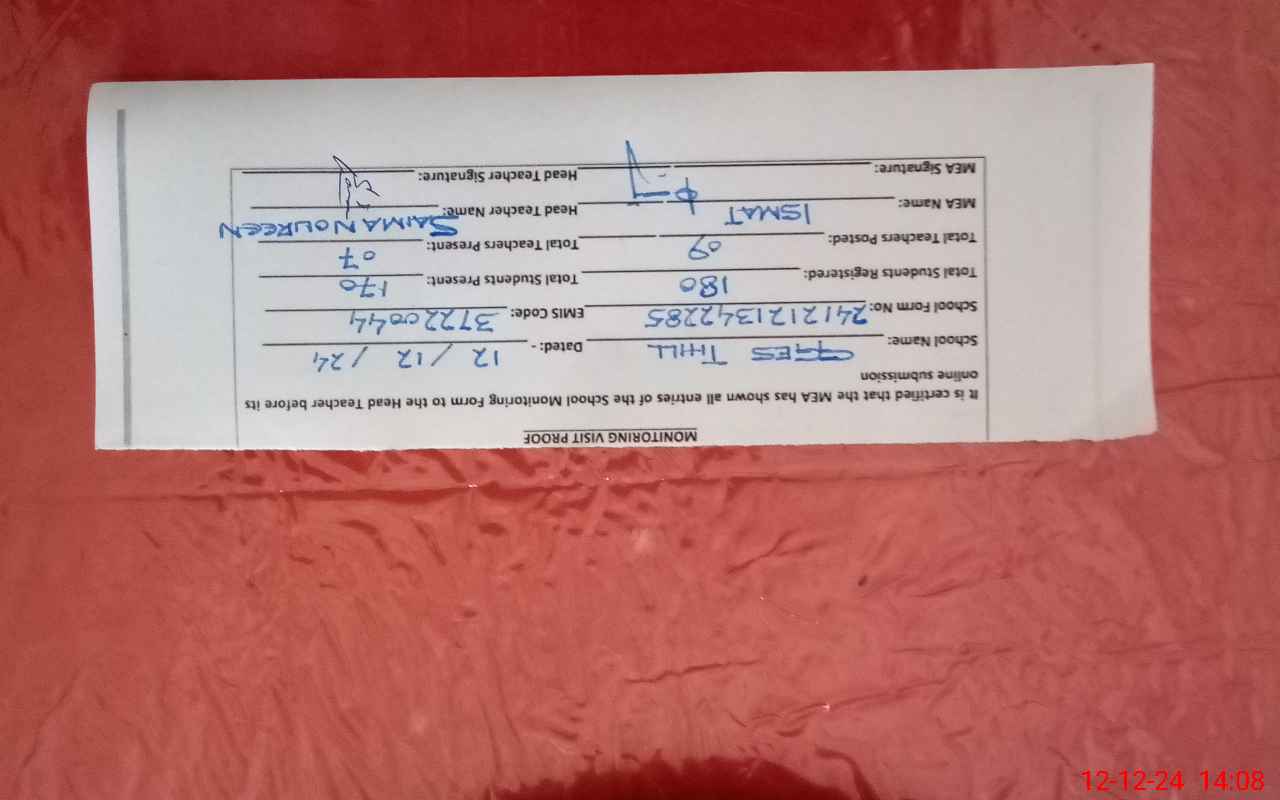 MONITORING VISIT PROOF
It is certified that the MEA has shown all entries of the School Monitoring Form to the Head Teacher before its
online submission
School Name: GGES THILL Dated: - 12 / 12 / 24
School Form No: 2412121342285 EMIS Code: 37220044
Total Students Registered: 180 Total Students Present: 170
Total Teachers Posted: 09 Total Teachers Present: 07
MEA Name: ISMAT Head Teacher Name: SAIMA NOUREEN
MEA Signature: Head Teacher Signature:
12-12-24 14:08